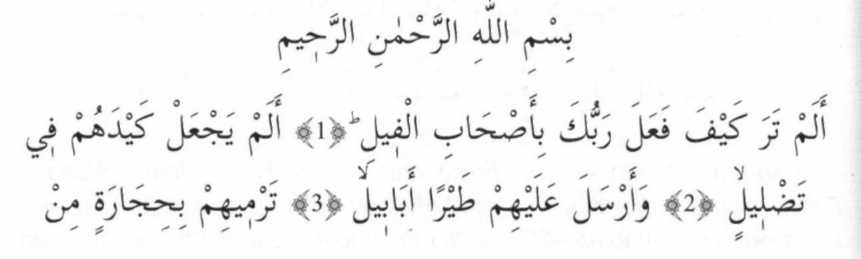 بِسْمِ اللّٰهِ الرَّحْمٰنِ الرَّحٖيمِ
أَلَمْ تَرَ كَيْفَ فَعَلَ رَبُّكَ بِأَصْحَابِ الْفٖيلِؕ ﴿1﴾ أَلَمْ يَجْعَلْ كَيْدَهُمْ فٖي
تَضْلٖيلٍۙ ﴿2﴾ وَأَرْسَلَ عَلَيْهِمْ طَيْرًا أَبَابٖيلَۙ ﴿3﴾ تَرْمٖيهِمْ بِحِجَارَةٍ مِنْ